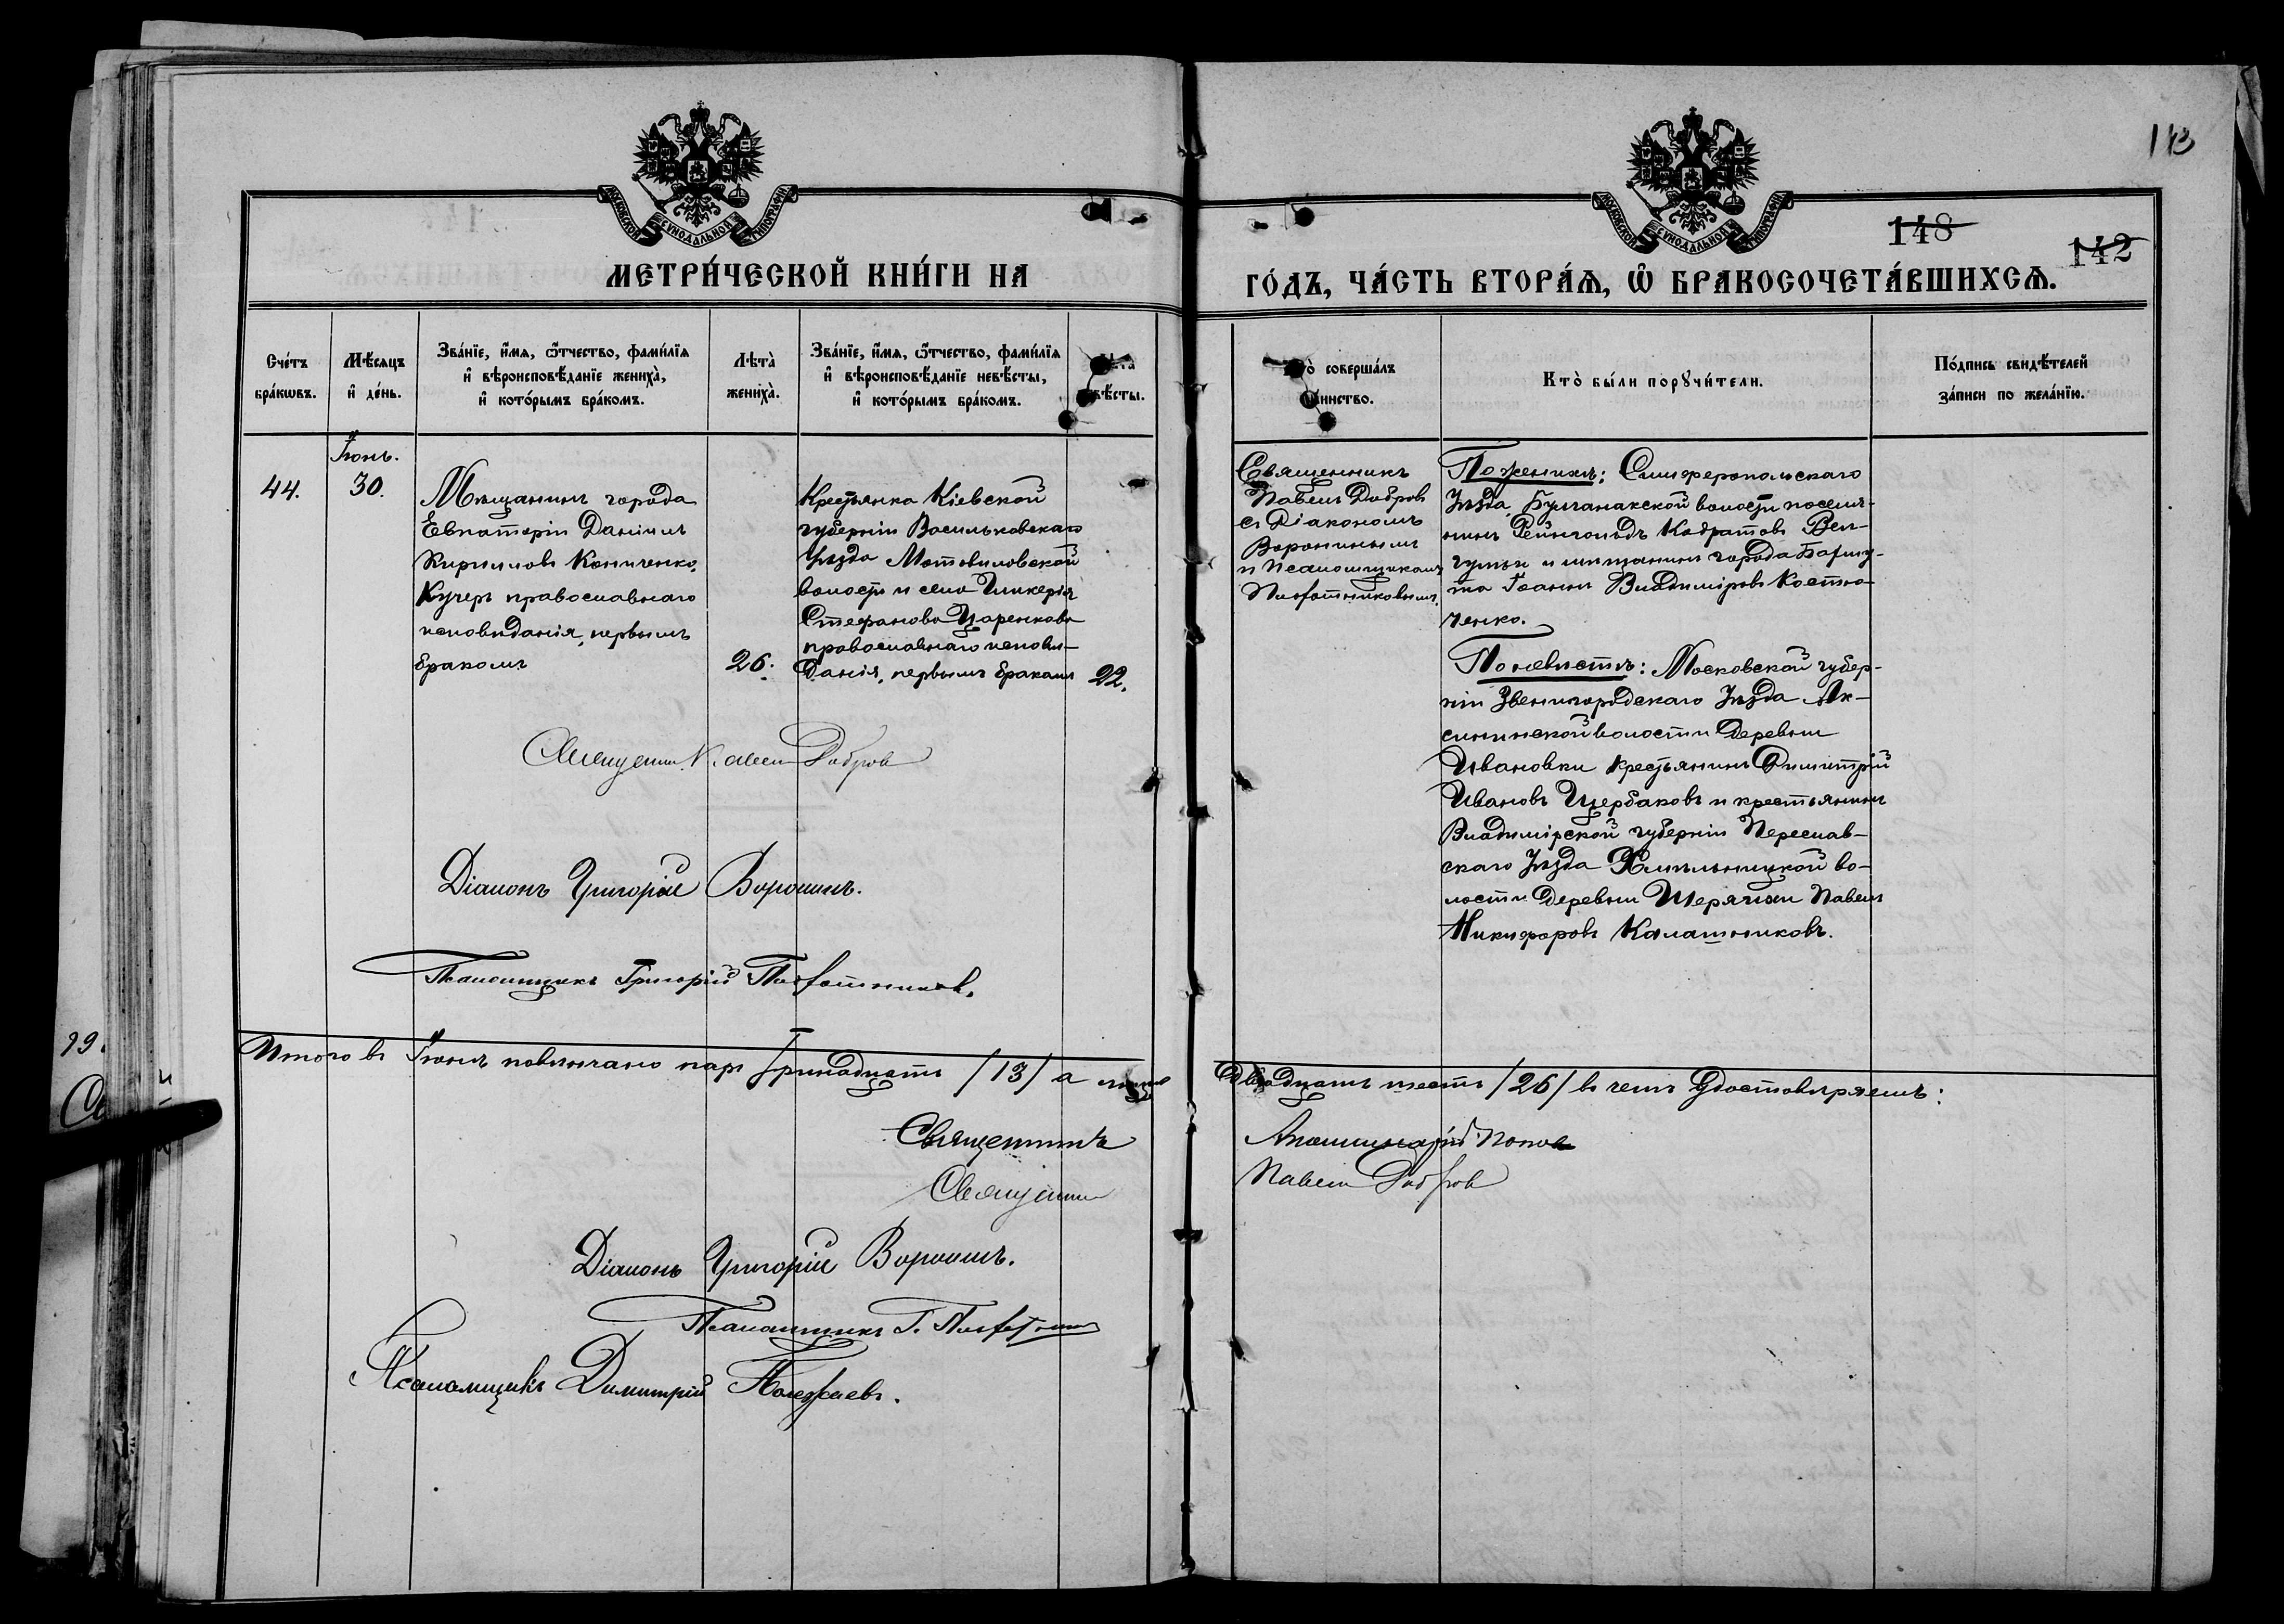 113
МОСКОВСКОЙ СѴНОДАЛЬНОЙ ТИПОГРАФІИ
МОСКОВСКОЙ СѴНОДАЛЬНОЙ ТИПОГРАФІИ
148
142
МЕТРИ́ЧЕСКОЙ КНИ́ГИ НА
ГО́ДЪ, ЧА́СТЬ ВТОРА́Ѧ, Ѡ҆ БРАКОСОЧЕТА́ВШИХСѦ.
Сче́тъ
бра́кѡвъ.
Мѣ́сѧцъ
и҆ де́нь.
Зва́нїе, и҆́мѧ, ѻ҆́тчество, фами́лїѧ
и҆ вѣроисповѣ́данїе жениха̀,
и҆ кото́рымъ бра́комъ.
Лѣта̀
жениха̀.
Зва́нїе, и҆́мѧ, ѻ҆́тчество, фами́лїѧ
и҆ вѣроисповѣ́данїе невѣ́сты,
и҆ кото́рымъ бра́комъ.
вѣ́сты.
соверша́лъ
Кто̀ бы́ли порꙋчи́тели.
По́дпись свидѣ́телей
за́писи по жела́нїю.
Іюнь.
44.
30.
Мѣщанинъ города
Евпаторіи Даніилъ
Кирилловъ Кониченко,
Кучеръ православнаго
исповѣданія, первымъ
бракомъ
26.
Крестьянка Кіевской
губерніи Васильковскаго
Уѣзда Мотовиловской
волости и села Гликерія
Стефанова Царенкова
православнаго исповѣ-
данія, первымъ бракомъ
22.
Священникъ
Павелъ Добровъ
съ Діакономъ
Воронинымъ
и Псаломщикомъ
По женихѣ: Симферопольскаго
Уѣзда, Булганакской волости поселя-
нинъ Рейнгольдъ Кодратовъ Вел-
и мѣщанинъ города Бахму-
та Іоаннъ Владиміровъ Костю-
ченко.
По невѣстѣ: Московской губер-
ніи Звенигородскаго Уѣзда Ак-
сининской волости деревни
Ивановки крестьянинъ Димитрій
Ивановъ Щербаковъ и крестьянинъ
Владимірской губерніи Переслав-
скаго Уѣзда Хмѣльницкой во-
лости деревни Павелъ
Никифоровъ Калашниковъ.
Священникъ Павелъ Добровъ
Діаконъ Григорій Воронинъ.
Псаломщикъ Григорій
Итого въ Іюнѣ повѣнчано паръ Тринадцать /13/ а лицъ
Двадцать шесть /26/ въ чемъ Удостовѣряемъ:
Священникъ
Аполлинарій Поповъ
Священникъ
Павелъ Добровъ
Діаконъ Григорій Воронинъ.
Псаломщикъ Г.
Псаломщикъ Димитрій Полежаевъ.
99.